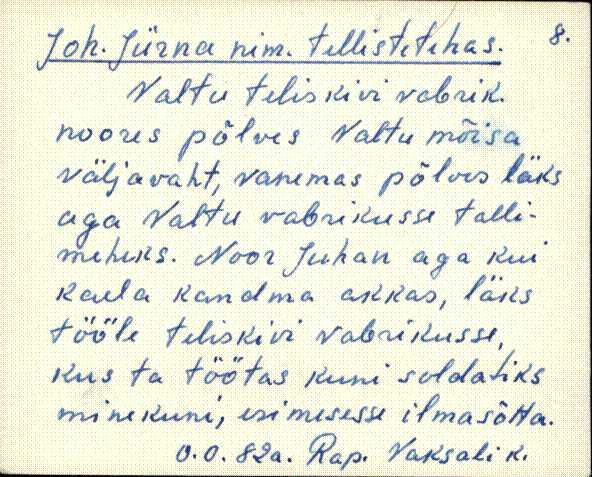 Joh. Jürna nim. tellistetehas. 8.
Valtu teliskivi vabrik.
noores põlves Valtu mõisa
väljavaht, vanemas põlves läks
aga Valtu vabrikusse talli-
meheks. Noor Juhan aga kui
kaela kandma akkas, läks
tööle teliskivi vabrikusse,
kus ta töötas kuni soldatiks
minekuni, esimesesse ilmasõtta.
O.O. 82a. Rap. Vaksali k.